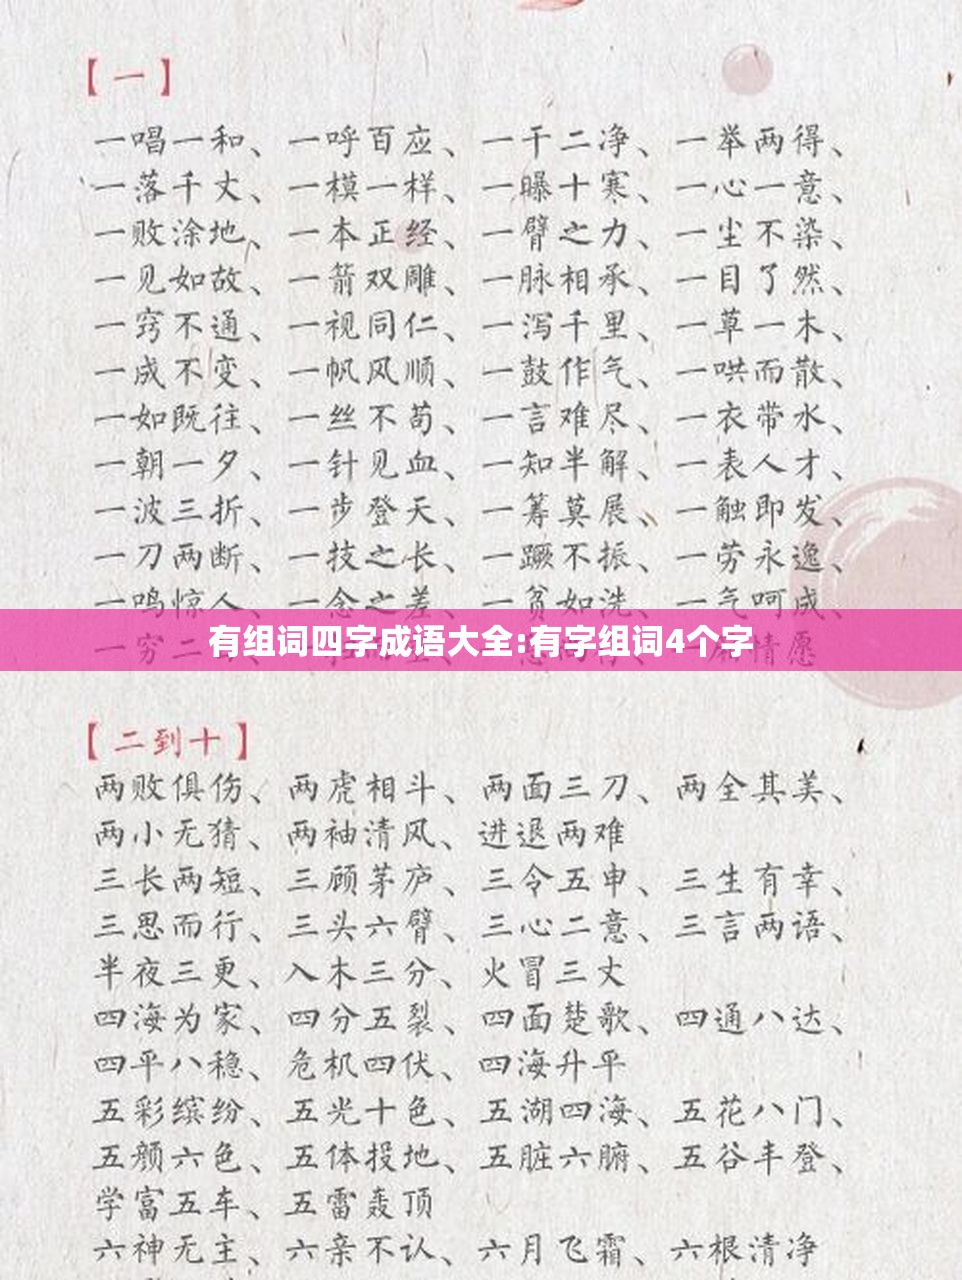 【一】
一唱一和、一呼百应、一干二净、一举两得、
一落千丈、一模一样、一曝十寒、一心一意、
一败涂地、一本正经、一臂之力、一尘不染、
一见如故、一箭双雕、一脉相承、一目了然、
一窍不通、一视同仁、一泻千里、一草一木、
一成不变、一帆风顺、一鼓作气、一哄而散、
一如既往、一丝不苟、一言难尽、一衣带水、
一朝一夕、一针见血、一知半解、一表人才、
一波三折、一步登天、一筹莫展、一触即发、
一刀两断、一技之长、一蹶不振、一劳永逸、
一鸣惊人、一念之差、一贫如洗、一气呵成、
有组词四字成语大全:有字组词4个字
一穷二 情愿
【二到十】
两败俱伤、两虎相斗、两面三刀、两全其美、
两小无猜、两袖清风、进退两难
三长两短、三顾茅庐、三令五申、三生有幸、
三思而行、三头六臂、三心二意、三言两语、
半夜三更、入木三分、火冒三丈
四海为家、四分五裂、四面楚歌、四通八达、
四平八稳、危机四伏、四海升平
五彩缤纷、五光十色、五湖四海、五花八门、
五颜六色、五体投地、五脏六腑、五谷丰登、
学富五车、五雷轰顶
六神无主、六亲不认、六月飞霜、六根清净